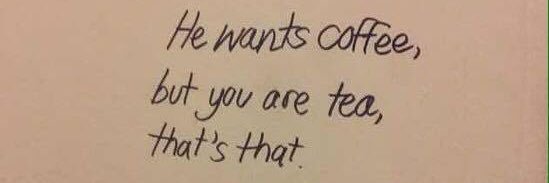 He wants coffee,
but you are tea,
that's that.